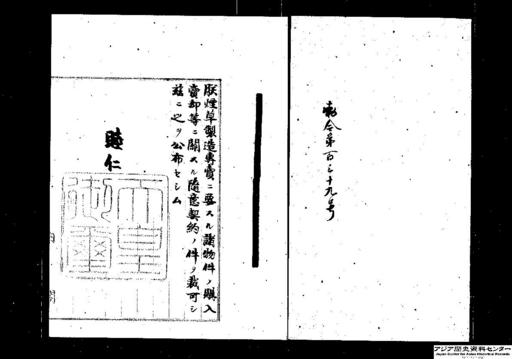 勅令第百三十九号
朕煙草製造専賣ニ要スル諸物件ノ購入
賣却等ニ關スル隨意契約ノ件ヲ裁可シ
茲ニ之ヲ公布セシム
睦仁
天皇御璽
アジア歴史資料センター
Japan Center for Asian Historical Records